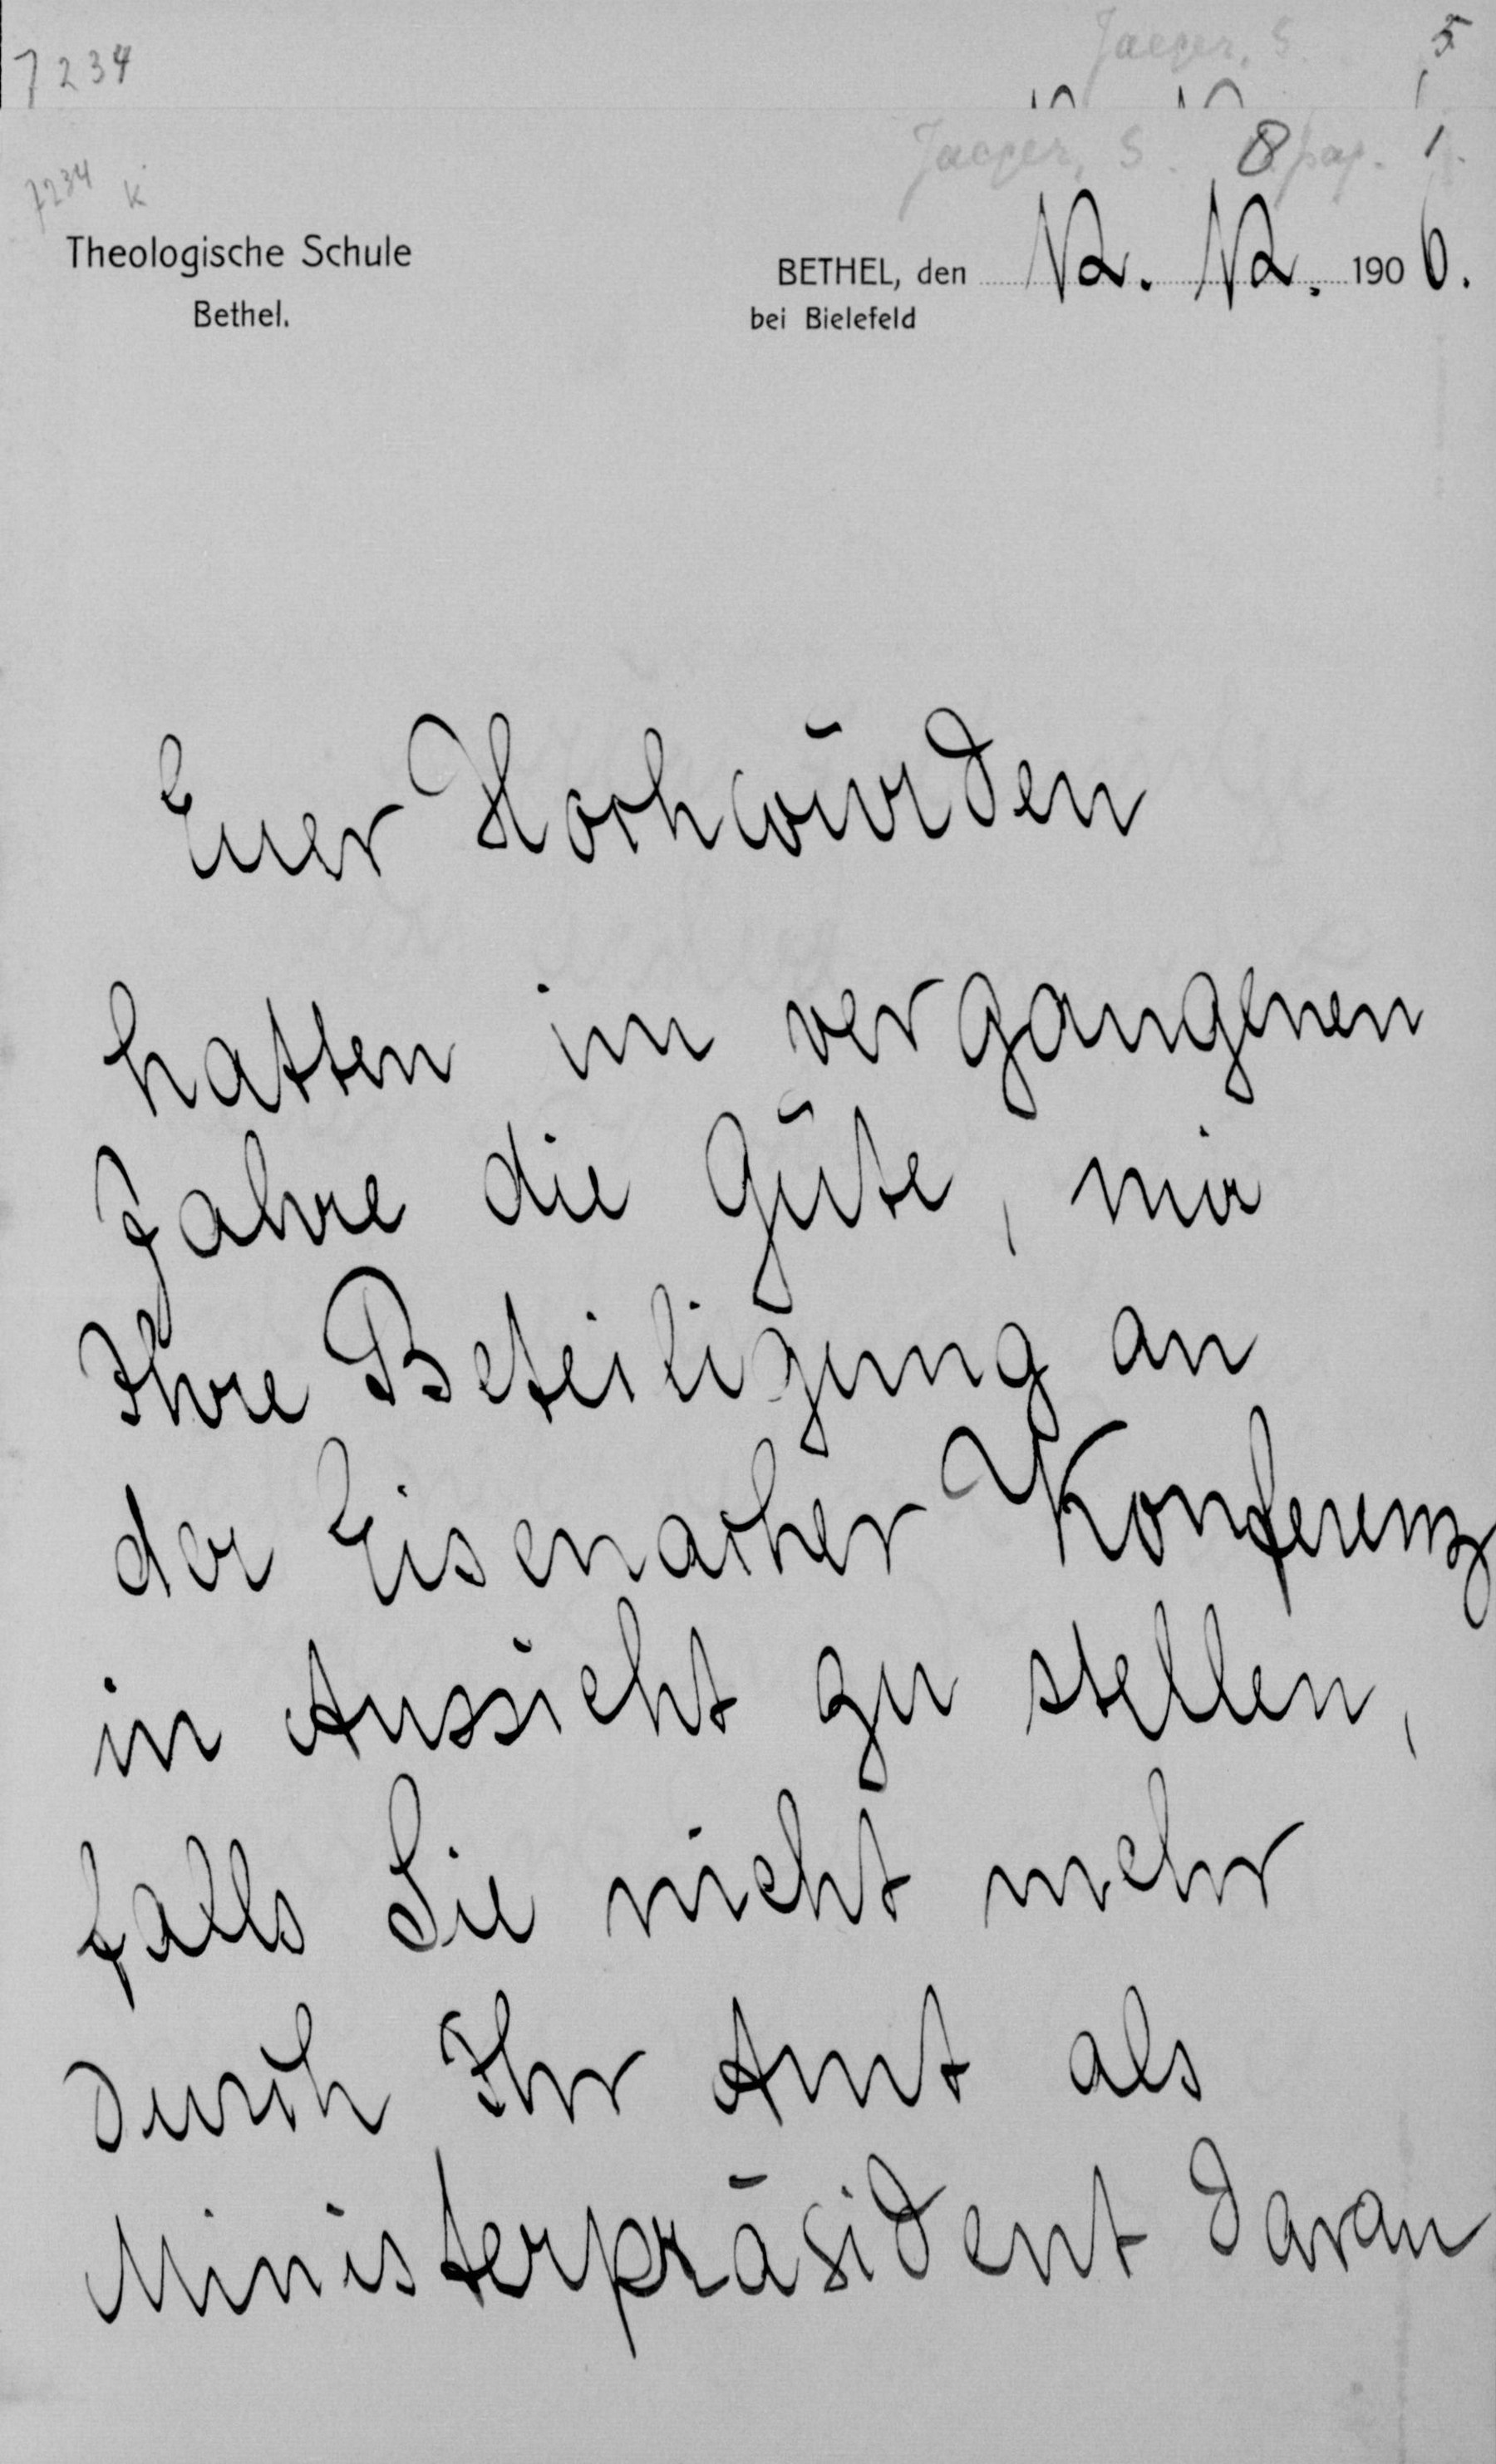 7234
Jaeger, S. 5
Jaeger, S. 8 pag. 1.
7234 K
Theologische Schule
Bethel.
BETHEL, den 12. 12. 1906.
bei Bielefeld
Euer Hochwürden
hatten im vergangenen
Jahre die Güte, mir
Ihre Beteiligung an
der Eisenacher Konferenz
in Aussicht zu stellen,
falls Sie nicht mehr
durch Ihr Amt als
Ministerpräsident daran